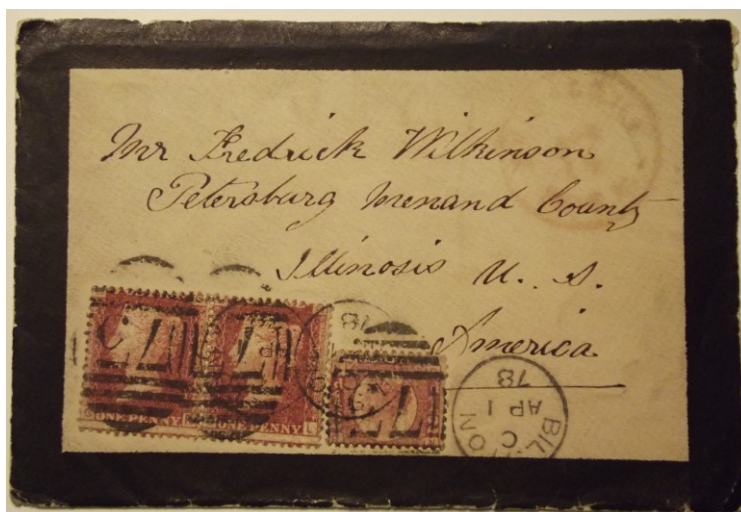 Mr Fredrick Wilkinson
Petersburg Menand County
Illinosis U. S.
America
ONE PENNY
ONE PENNY L
C
AP 1
78